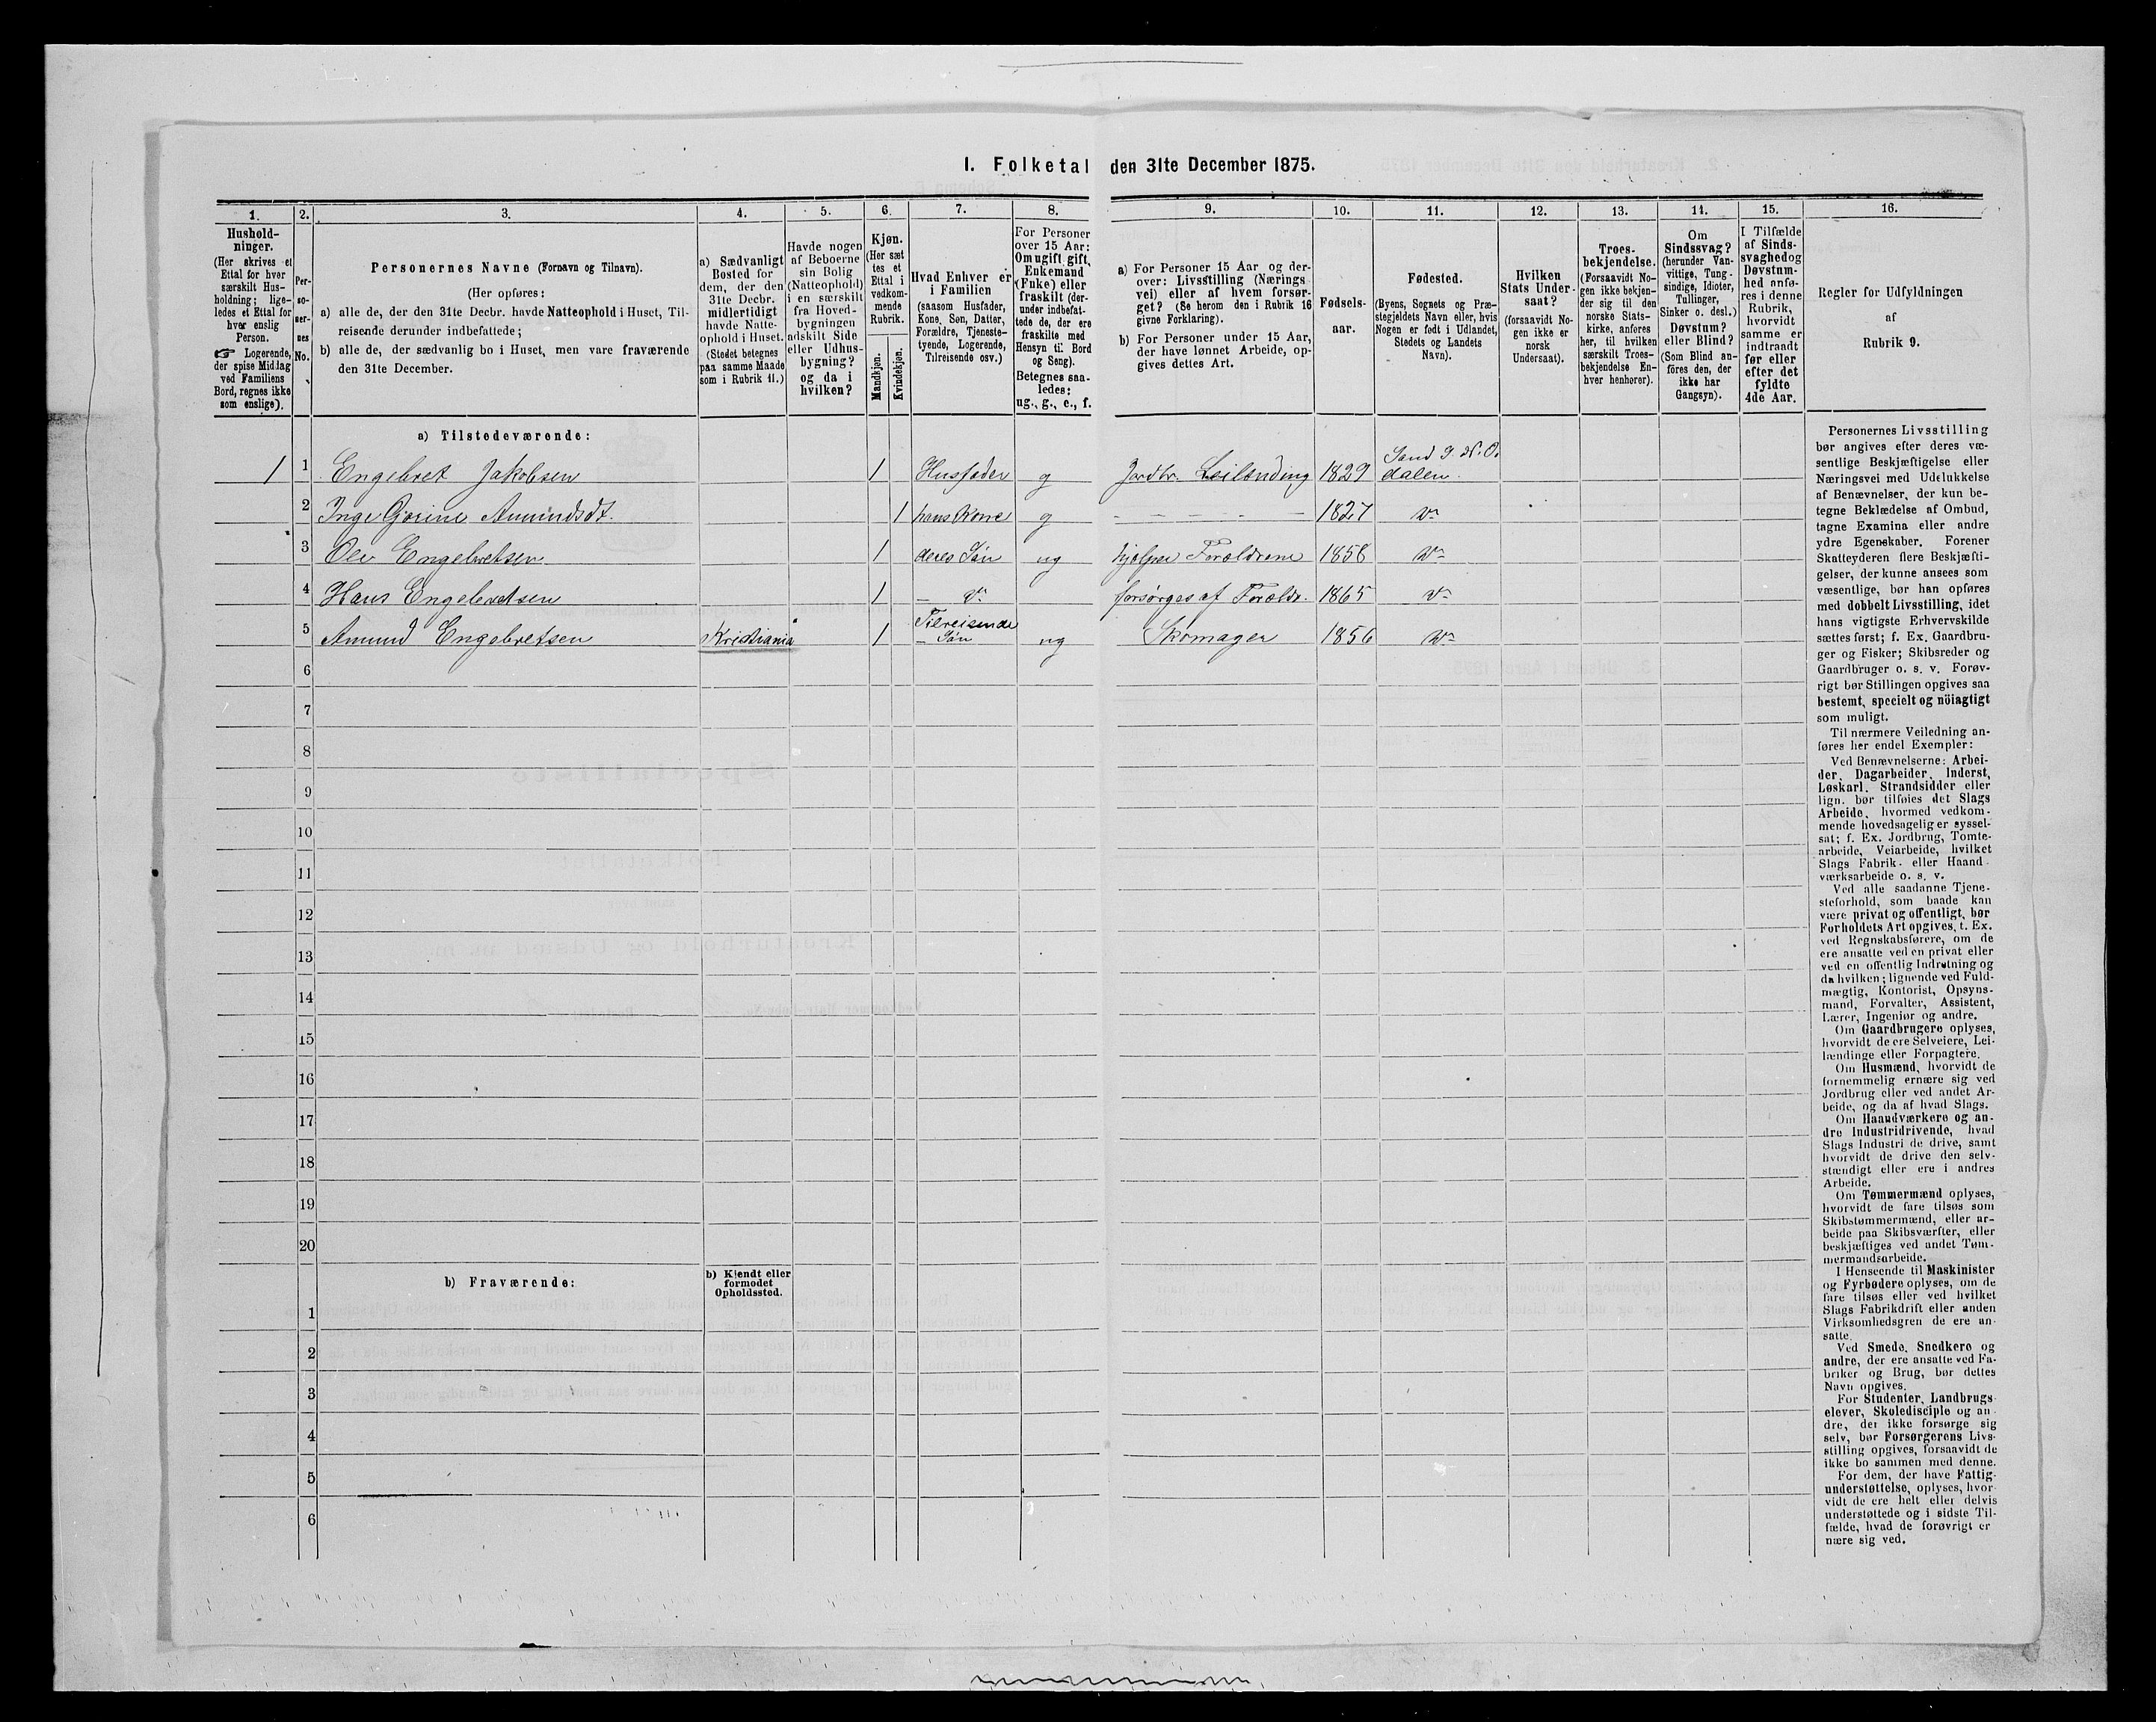 I. Folketal den 31te December 1875.
1.
2.
3.
4.
5.
6.
7.
8.
9.
10.
11.
12.
13.
14.
15.
16.
Hushold-
ninger.
(Her skrives et
Ettal for hver
særskilt Hus-
holdning; lige-
ledes et Ettal for
hver enslig
Person.
☞ Logerende,
der spise Middag
ved Familiens
Bord, regnes ikke
som enslige).
Per-
so-
ner-
nes
No.
Personernes Navne (Fornavn og Tilnavn).
(Her opføres:
a) alle de, der den 31te Decbr. havde Natteophold i Huset, Til-
reisende derunder indbefattede;
b) alle de, der sædvanlig bo i Huset, men vare fraværende
den 31te December.
a) Sædvanligt
Bosted for
dem, der den
31te Decbr.
midlertidigt
havde Natte-
ophold i Huset.
(Stedet betegnes
paa samme Maade
som i Rubrik 11.)
Havde nogen
af Beboerne
sin Bolig
(Natteophold)
i en særskilt
fra Hoved-
bygningen
adskilt Side
eller Udhus-
bygning?
og da i
hvilken?
Kjøn.
(Her sæt
tes et
Ettal i
vedkom-
mende
Rubrik.
Mandkjøn.
Kvindekjøn.
Hvad Enhver er
i Familien
(saasom Husfader,
Kone, Søn, Datter,
Forældre, Tjeneste-
tyende, Logerende,
Tilreisende osv.)
For Personer
over 15 Aar:
Om ugift, gift,
Enkemand
(Enke) eller
fraskilt (der-
under indbefat-
tede de, der ere
fraskilte med
Hensyn til Bord
og Seng).
Betegnes saa-
ledes:
ug., g., e., f.
a) For Personer 15 Aar og der-
over: Livsstilling (Nærings
vei) eller af hvem forsør-
get? (Se herom den i Rubrik 16
givne Forklaring).
b) For Personer under 15 Aar,
der have lønnet Arbeide, op-
gives dettes Art.
Fødsels-
aar.
Fødested.
(Byens, Sognets og Præ-
stegjeldets Navn eller, hvis
Nogen er født i Udlandet,
Stedets og Landets
Navn).
Hvilken
Stats Under-
saat?
(forsaavidt No-
gen ikke er
norsk
Undersaat).
Troes-
bekjendelse.
(Forsaavidt No-
gen ikke bekjen-
der sig til den
norske Stats-
kirke, anføres
her, til hvilken
særskilt Troes-
bekjendelse En-
hver henhører).
Om
Sindssvag?
(herunder Van-
vittige, Tung-
sindige, Idioter,
Tullinger,
Sinker o. desl.)
Døvstum?
eller Blind?
(Som Blind an-
föres den, der
ikke har
Gangsyn).
I Tilfælde
af Sinds-
svaghed og
Døvstum-
hed anfø-
res i denne
Rubrik,
hvorvidt
samme er
indtraadt
før eller
efter det
fyldte
4de Aar.
Regler for Udfyldningen
af
Rubrik 9.
a) Tilstedeværende:
1 1 Engebret Jakobsen 1 Husfader g Jordbr. Leilænding 1829 Sand S. N. O. dalen.
2 Inge Gorine Amundsdt. 1 hans Kone g 1827 do
3 Ole Engebretsen 1 deres Søn ug hjelper Forældrene 1858 do
4 Hans Engebretsen 1 – do forsørges af Forældr. 1865 do
5 Amund Engebretsen Kristiania 1 Tilreisende – Søn ug Skomager 1856 do
6
7
8
9
10
11
12
13
14
15
16
17
18
19
20
b) Fraværende:
b) Kjendt eller
formodet
Opholdssted.
1
2
3
4
5
6
Personernes Livsstilling
bør angives efter deres væ-
sentlige Beskjæftigelse eller
Næringsvei med Udelukkelse
af Benævnelser, der kun be-
tegne Beklædelse af Ombud,
tagne Examina eller andre
ydre Egenskaber. Forener
Skatteyderen flere Beskjæfti-
gelser, der kunne ansees som
væsentlige, bør han opføres
med dobbelt Livsstilling, idet
hans vigtigste Erhvervskilde
sættes først; f. Ex. Gaardbru-
ger og Fisker; Skibsreder og
Gaardbruger o. s. v. Forøv-
rigt bør Stillingen opgives saa
bestemt, specielt og nöiagtigt
som muligt.
Til nærmere Veiledning an-
føres her endel Exempler:
Ved Benævnelserne: Arbei-
der, Dagarbeider, Inderst,
Løskarl, Strandsidder eller
lign. bør tilføies det Slags
Arbeide, hvormed vedkom-
mende hovedsagelig er syssel-
sat; f. Ex. Jordbrug, Tomte-
arbeide, Veiarbeide, hvilket
Slags Fabrik- eller Haand-
værksarbeide o. s. v.
Ved alle saadanne Tjene-
steforhold, som baade kan
være privat og offentligt, bør
Forholdets Art opgives, t. Ex.
ved Regnskabsførere, om de
ere ansatte ved en privat eller
ved en offentlig Indretning og
da hvilken; lignende ved Fuld-
mægtig, Kontorist, Opsyns-
mand, Forvalter, Assistent,
Lærer, Ingeniør og andre.
Om Gaardbrugere oplyses,
hvorvidt de ere Selveiere, Lei-
lændinge eller Forpagtere.
Om Husmænd, hvorvidt de
fornemmelig ernære sig ved
Jordbrug eller ved andet Ar-
beide, og da af hvad Slags.
Om Haandværkere og an-
dre Industridrivende, hvad
Slags Industri de drive, samt
hvorvidt de drive den selv-
stændigt eller ere i andres
Arbeide.
Om Tømmermænd oplyses,
hvorvidt de fare tilsøs som
Skibstømmermænd, eller ar-
beide paa Skibsværfter, eller
beskjæftiges ved andet Tøm-
mermandsarbeide.
I Henseende til Maskinister
og Fyrbødere oplyses, om de
fare tilsøs eller ved hvilket
Slags Fabrikdrift eller anden
Virksomhedsgren de ere an-
satte.
Ved Smede, Snedkere og
andre, der ere ansatte ved Fa-
briker og Brug, bør dettes
Navn opgives.
For Studenter, Landbrugs-
elever, Skoledisciple og an-
dre, der ikke forsørge sig
selv, bør Forsørgerens Livs-
stilling opgives, forsaavidt de
ikke bo sammen med denne.
For dem, der have Fattig-
understøttelse, oplyses, hvor-
vidt de ere helt eller delvis
understøttede og i sidste Til-
fælde, hvad de forøvrigt er
nære sig ved.